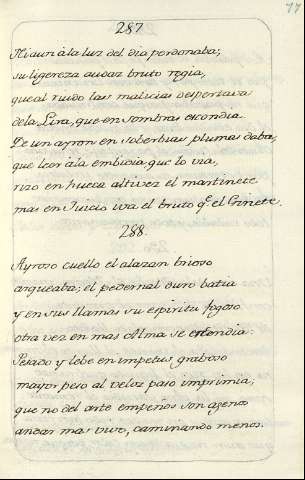 77
287
Ni aun à la luz del dia perdonaba;
su ligereza audaz bruto regia,
que al ruido las malicias despertava
de la Lira, que en sombras escondia.
De un ayron en soberbias plumas daba,
que leer à la embidia, que lo via,
rizo en hueca altivez el martinete
mas en Juicio iva el bruto q.e el Ginete.
288
Ayroso cuello el alazan brioso
arqueaba; el pedernal duro batia
y en sus llamas su espiritu fogoso
otra vez en mas Alma se encendia.
Pesado y lebe en impetus graboso
mayor peso al veloz paso imprimia;
que no del arte empeños son agenos
andar mas vivo, caminando menos.